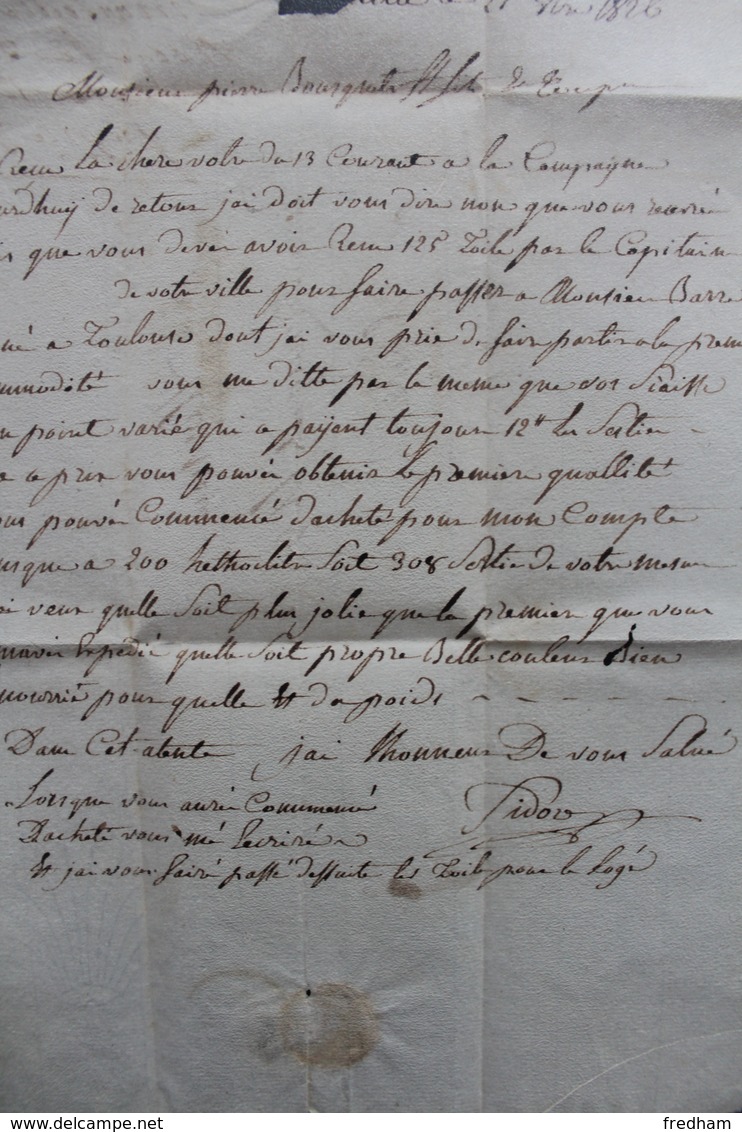 1826
Monsieur pierre Bousquet & fils
Reçu la chere votre du 13 Courant a la Campagne
urdhuÿ de retour jai doit vous dire non que vous
que vous devéz avoir Recu 125 Toile par le Capitain
de votre ville pour faire passer a Monsieur Barre
né a Toulouse dont jai vous prie de faire partir a la premi
mmodité vous me ditte par la meme que vos Siaisse
n point varié qui ce paÿent toujour 12tt les Sestier
a ce prix vous pouvér obtenir la premiere quallité
ous pouvér Commencé dacheté pour mon Comple
usque a 200 hethoclitre Soit 308 Sestie de votre mesure
ai veux quelle Soit plus jolie que la premier que vous
mavér Expedié quelle Soit propre Belle couleur Bien
nourrie pour quelle & du poids
Dans Cet atente jai lhonneur De vous Salué
Lorsque vous auréz Commencé
Dacheté vous mé Lecriréz
& jai vous fairé passé dessuite les Toile pour le logé
Sidor
fredham